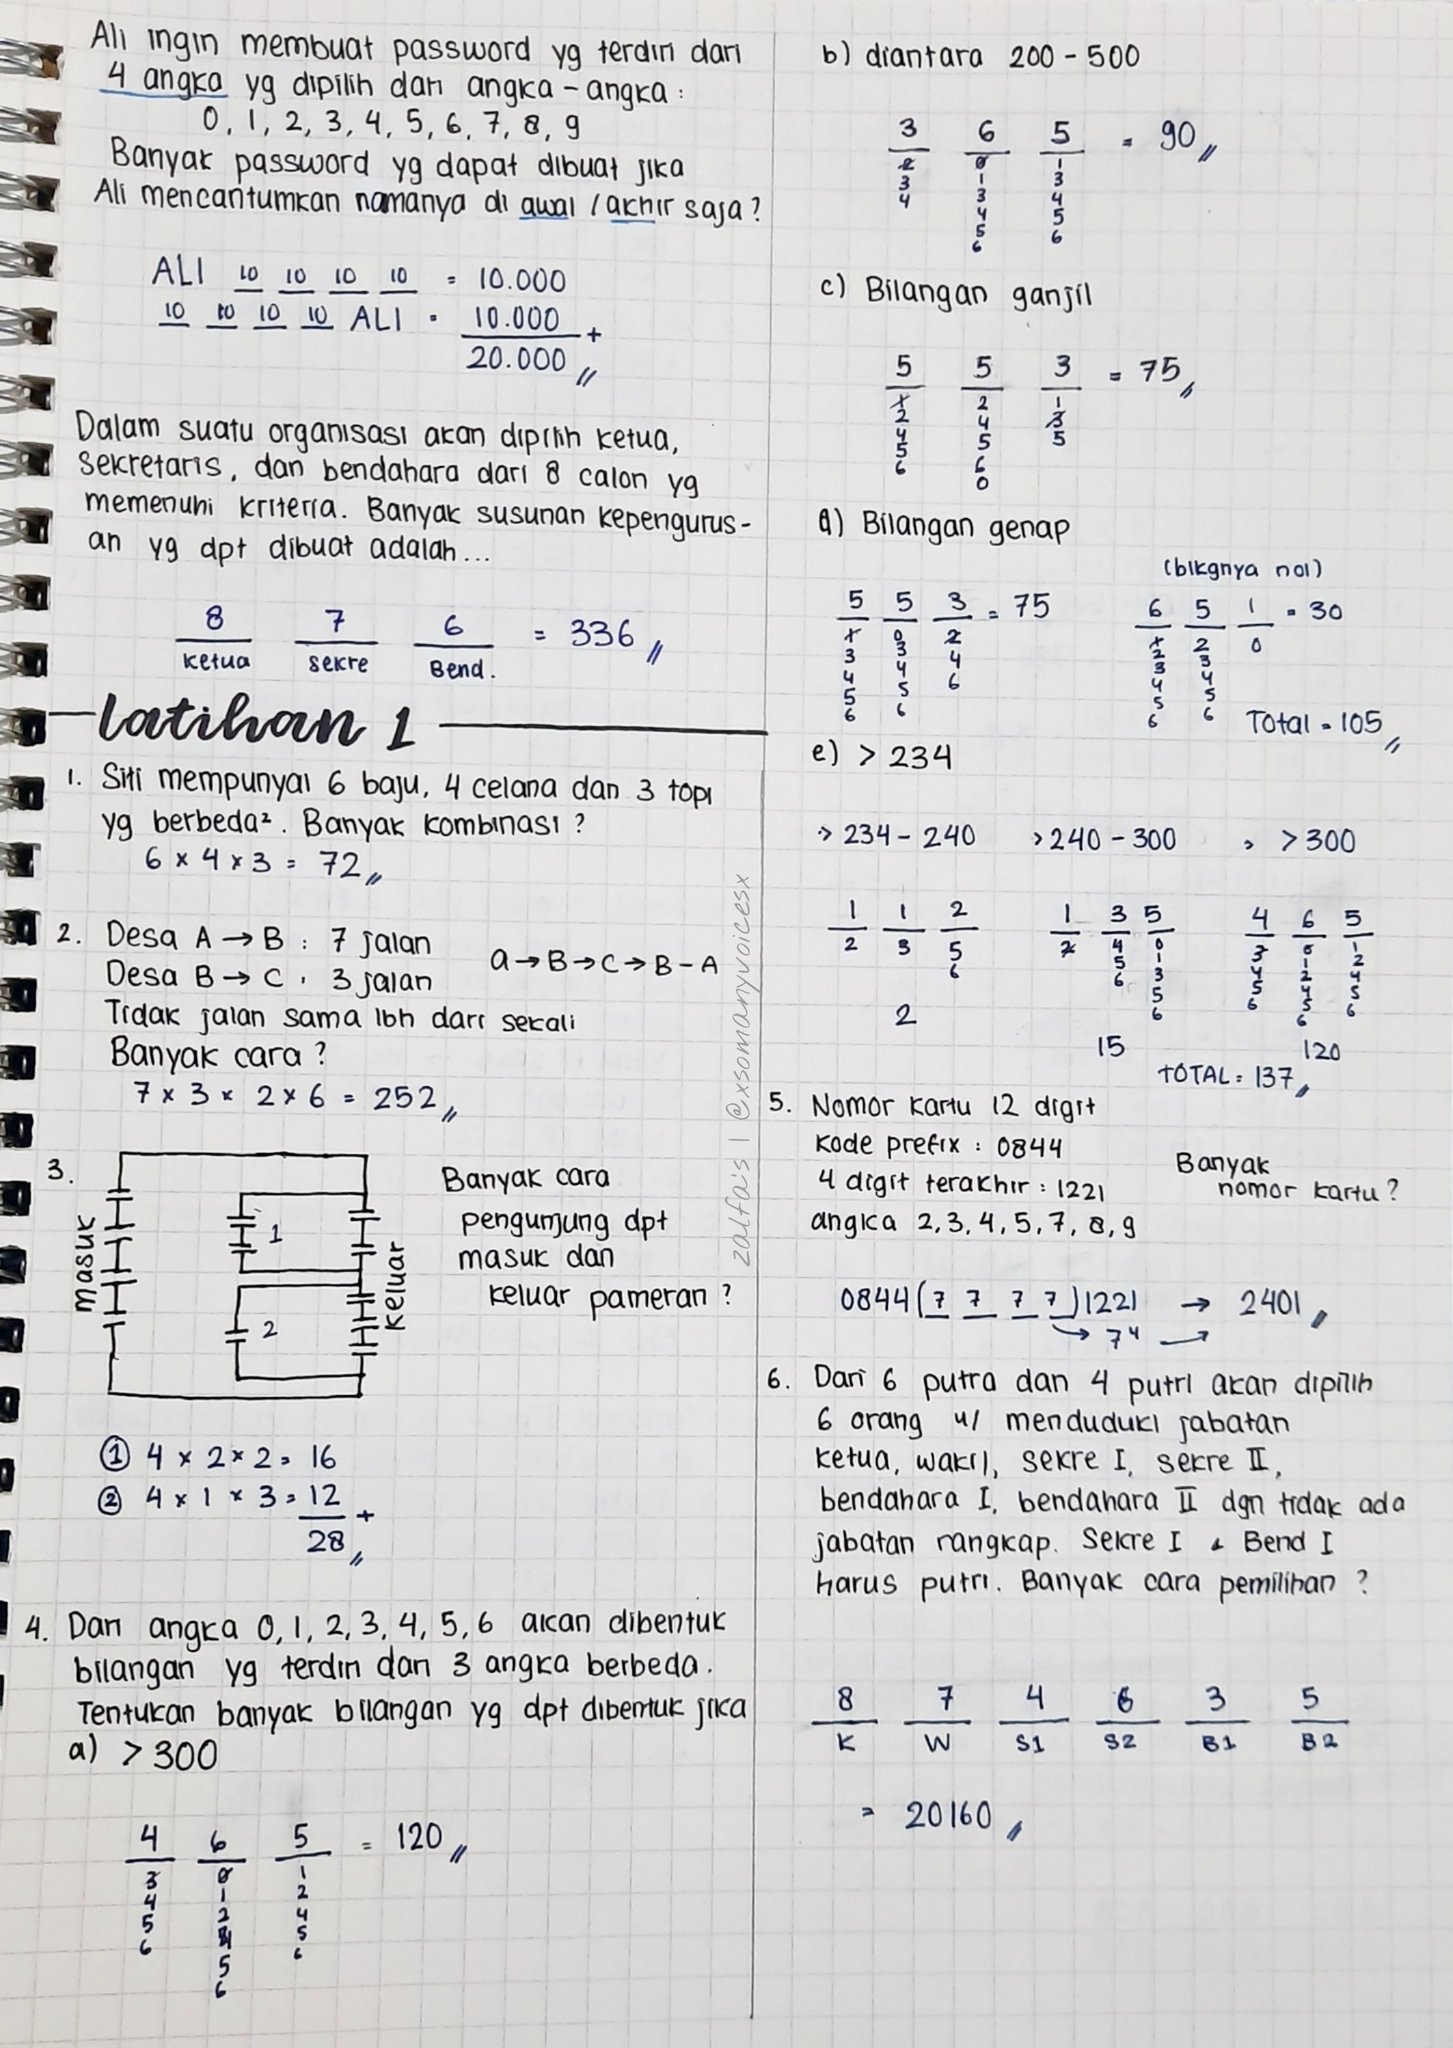 Ali ingin membuat password yg terdiri dari
4 angka yg dipilih dari angka-angka :
0, 1, 2, 3, 4, 5, 6, 7, 8, 9
Banyak password yg dapat dibuat jika
Ali mencantumkan namanya di awal / akhir saja ?
ALI 10 10 10 10 = 10.000
10 10 10 10 ALI = 10.000 +
20.000 //
Dalam suatu organisasi akan dipilih ketua,
sekretaris, dan bendahara dari 8 calon yg
memenuhi kriteria. Banyak susunan kepengurus-
an yg dpt dibuat adalah...
8 7 6 = 336 //
ketua sekre Bend.
latihan 1
1. Siti mempunyai 6 baju, 4 celana dan 3 topi
yg berbeda². Banyak kombinasi ?
6 × 4 × 3 = 72 //
2. Desa A → B : 7 jalan
Desa B → C : 3 jalan
a → B → C → B - A
Tidak jalan sama lbh dari sekali
Banyak cara ?
7 × 3 × 2 × 6 = 252 //
3.
masuk
1
2
keluar
Banyak cara
pengunjung dpt
masuk dan
keluar pameran ?
① 4 × 2 × 2 = 16
② 4 × 1 × 3 = 12 +
28 //
4. Dari angka 0, 1, 2, 3, 4, 5, 6 akan dibentuk
bilangan yg terdiri dari 3 angka berbeda.
Tentukan banyak bilangan yg dpt dibentuk jika
a) > 300
4 6 5 = 120 //
3 0 1
4 1 2
5 2 4
6 4 5
5 6
6
zalfa's | @xsomanyvoicesx
b) diantara 200 - 500
3 6 5 = 90 //
2 0 1
3 1 3
4 3 4
4 5
5 6
6
c) Bilangan ganjil
5 5 3 = 75 //
1 2 1
2 4 3
4 5 5
5 6
6 0
d) Bilangan genap
(blkgnya nol)
5 5 3 = 75
1 0 2
3 3 4
4 4 6
5 5
6 6
6 5 1 = 30
1 2 0
2 3
3 4
4 5
5 6
6
Total = 105 //
e) > 234
> 234 - 240
> 240 - 300
> > 300
1 1 2
2 3 5
6
2
1 3 5
2 4 0
5 1
6 3
5
6
15
4 6 5
3 0 1
4 1 2
5 2 4
6 4 5
5 6
6
120
TOTAL = 137 //
5. Nomor kartu 12 digit
kode prefix : 0844
4 digit terakhir : 1221
angka 2, 3, 4, 5, 7, 8, 9
Banyak
nomor kartu ?
0844 ( 7 7 7 7 ) 1221 → 2401 //
→ 7⁴ →
6. Dari 6 putra dan 4 putri akan dipilih
6 orang u/ menduduki jabatan
ketua, wakil, sekre I, sekre II,
bendahara I, bendahara II dgn tidak ada
jabatan rangkap. Sekre I & Bend I
harus putri. Banyak cara pemilihan ?
8 7 4 6 3 5
K W S1 S2 B1 B2
= 20160 //